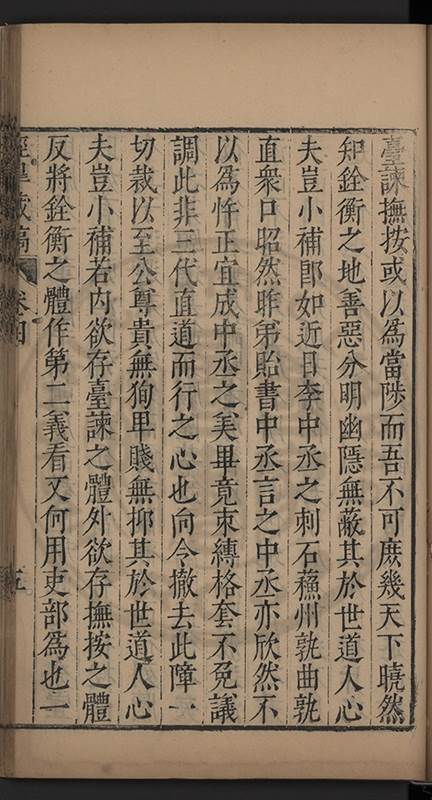 臺諫撫按或以爲當陟而吾不可庶幾天下曉然
知銓衡之地善惡分明幽隱無蔽其於世道人心
夫豈小補卽如近日李中丞之刺石蘓州孰曲孰
直衆口昭然昨第貽書中丞言之中丞亦欣然不
以爲忤正宜成中丞之美畢竟束縛格套不免議
調此非三代直道而行之心也向今撤去此障一
切裁以至公尊貴無狥卑賤無抑其於世道人心
夫豈小補若内欲存臺諫之體外欲存撫按之體
反將銓衡之體作第二義看又何用吏部爲也一
涇臯藏稿 卷四 五